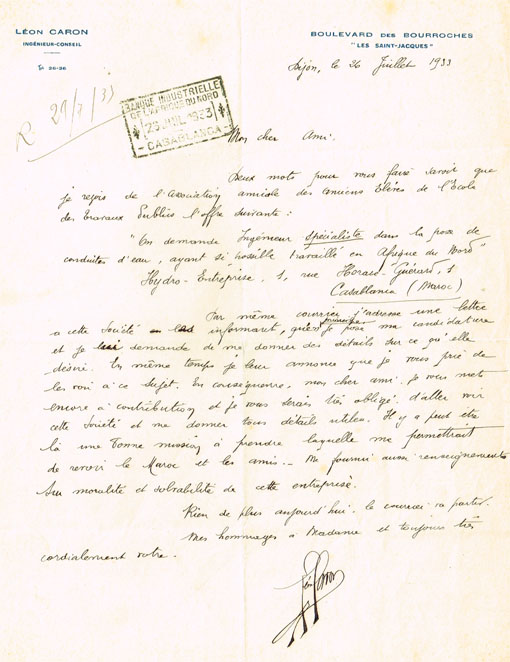 LÉON CARON
INGÉNIEUR-CONSEIL
Tél. 26-36
BOULEVARD DES BOURROCHES
"LES SAINT-JACQUES"
Dijon, le 26 Juillet 1933
R. 29/7/33
BANQUE INDUSTRIELLE
DE L'AFRIQUE DU NORD
29 JUIL 1933
- CASABLANCA -
Mon cher Ami.
Deux mots pour vous faire savoir que
je reçois de l'Association amicale des anciens Elèves de l'Ecole
des Travaux Publics l'offre suivante :
"On demande Ingénieur spécialiste dans la pose de
conduites d'eau, ayant si possible travaillé en Afrique du Nord"
Hydro-Entreprise, 1, rue Horace-Guérard, 1
Casablanca (Maroc)
Par même courrier j'adresse une lettre
a cette Société en informant, qu'en principe je pose ma candidature
et je demande de me donner des détails sur ce qu'elle
désire. En même temps je leur annonce que je vous prie de
les voir à ce sujet. En conséquence, mon cher ami, je vous mets
encore à contribution et je vous serais très obligé d'aller voir
cette Société et me donner tous détails utiles. Il y a peut être
là une bonne mission à prendre laquelle me permettrait
de revoir le Maroc et les amis.. Me fournir aussi renseignements
sur moralité et solvabilité de cette entreprise.
Rien de plus aujourd'hui. le courrier va partir.
Mes hommages à Madame et toujours très
cordialement votre.
Léon Caron